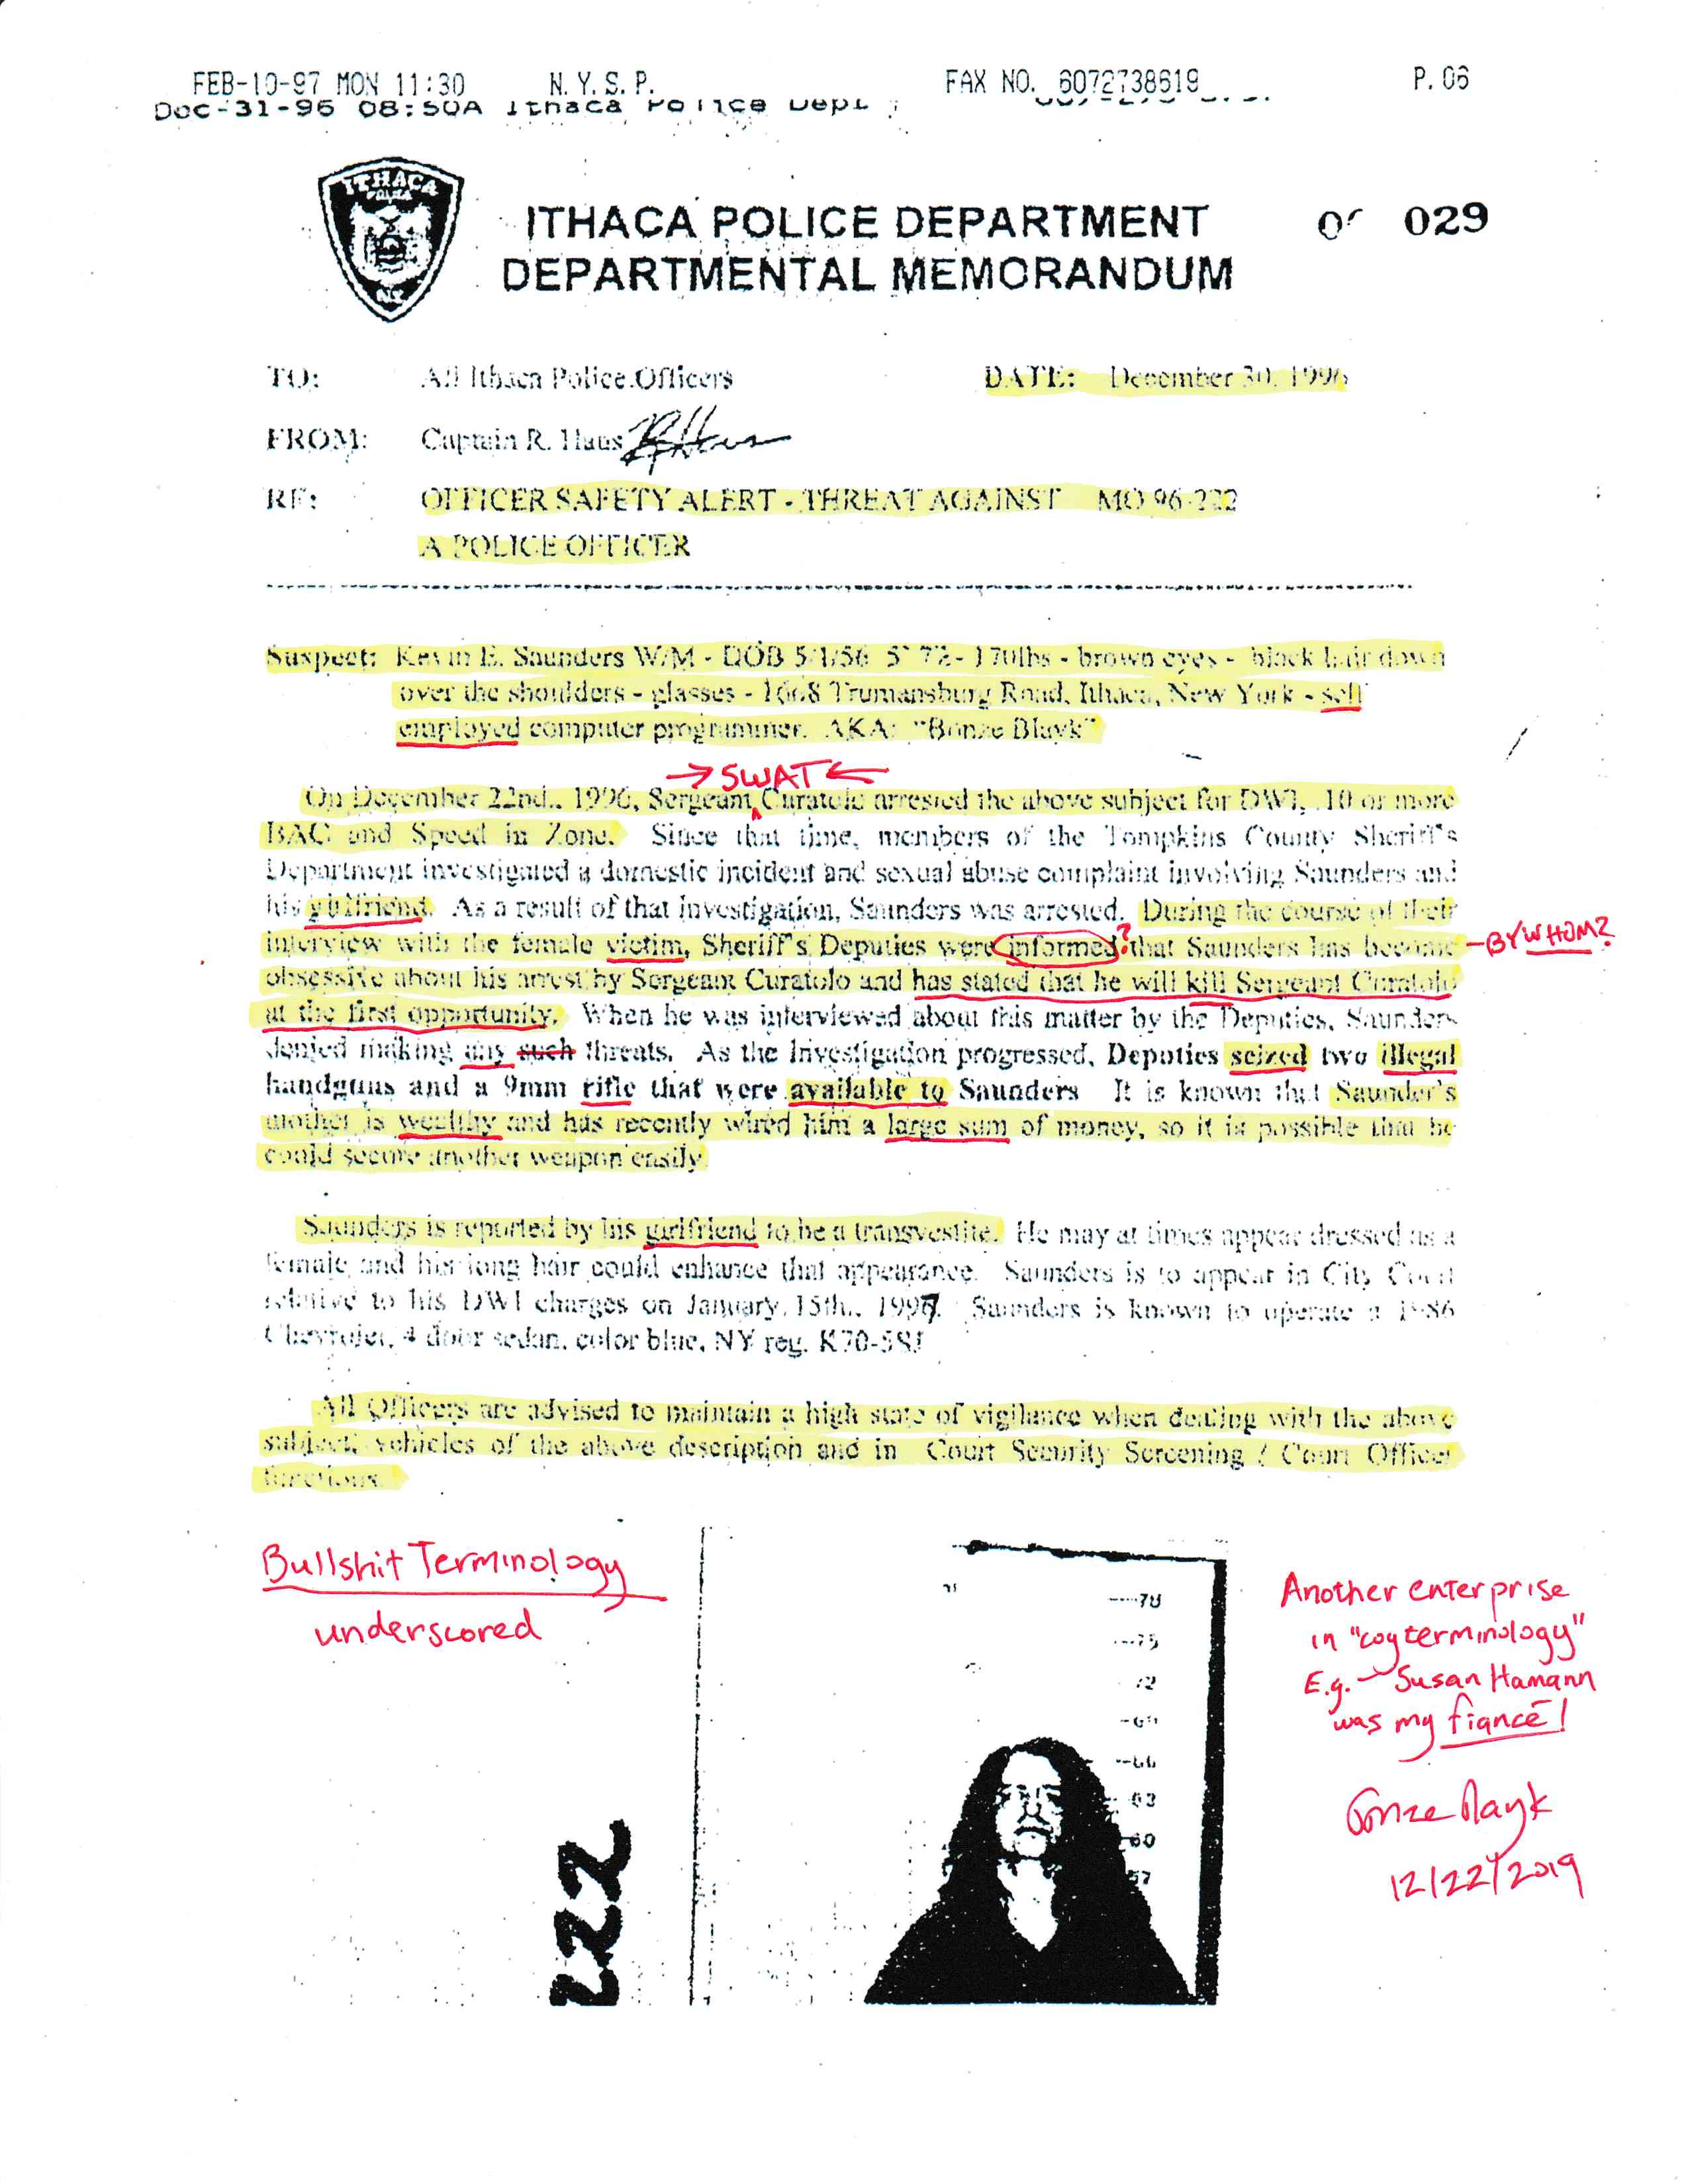 FEB-10-97 MON 11:30 N.Y.S.P. FAX NO. 6072738619 P.06
Dec-31-96 08:50A Ithaca Police Dept
ITHACA
POLICE
N.Y.
ITHACA POLICE DEPARTMENT 029
DEPARTMENTAL MEMORANDUM
TO: All Ithaca Police Officers DATE: December 30, 1996
FROM: Captain R. Haus RHaus
RE: OFFICER SAFETY ALERT - THREAT AGAINST MO 96-222
A POLICE OFFICER
Suspect: Kevin E. Saunders W/M - DOB 5/1/56 5' 7½- 170lbs - brown eyes - black hair down
over the shoulders - glasses - 1668 Trumansburg Road, Ithaca, New York - self
employed computer programmer. AKA: "Bonze Blayk"
→ SWAT ←
On December 22nd., 1996, Sergeant Curatolo arrested the above subject for DWI, .10 or more
BAC and Speed in Zone. Since that time, members of the Tompkins County Sheriff's
Department investigated a domestic incident and sexual abuse complaint involving Saunders and
his girlfriend. As a result of that investigation, Saunders was arrested. During the course of their
interview with the female victim, Sheriff's Deputies were informed ? that Saunders has become - BY WHOM?
obsessive about his arrest by Sergeant Curatolo and has stated that he will kill Sergeant Curatolo
at the first opportunity. When he was interviewed about this matter by the Deputies, Saunders
denied making any such threats. As the investigation progressed, Deputies seized two illegal
handguns and a 9mm rifle that were available to Saunders It is known that Saunder's
mother is wealthy and has recently wired him a large sum of money, so it is possible that he
could secure another weapon easily.
Saunders is reported by his girlfriend to be a transvestite. He may at times appear dressed as a
female and his long hair could enhance that appearance. Saunders is to appear in City Court
relative to his DWI charges on January, 15th., 1997. Saunders is known to operate a 1986
Chevrolet, 4 door sedan, color blue, NY reg. K70-5SJ
All Officers are advised to maintain a high state of vigilance when dealing with the above
subject, vehicles of the above description and in Court Security Screening / Court Officer
functions.
Bullshit Terminology
underscored
78
75
72
69
66
63
60
57
222
Another enterprise
in "coyterminology"
E.g. - Susan Hamann
was my fiancé!
Bonze Blayk
12/22/2019